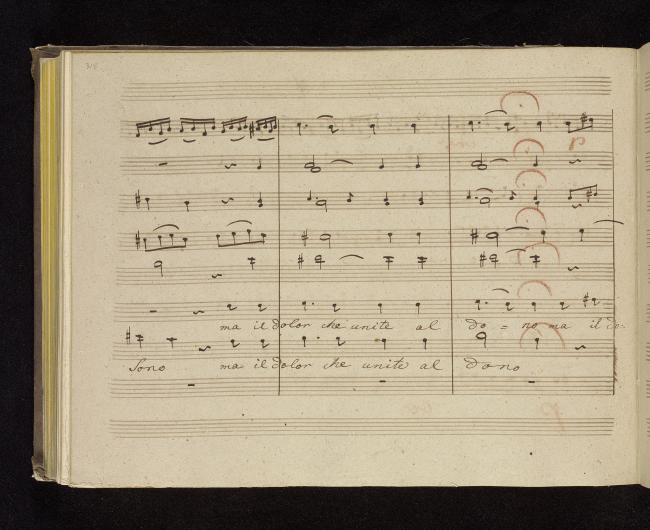 ma il dolor che unite al do = no ma il do-
sono ma il dolor che unite al dono